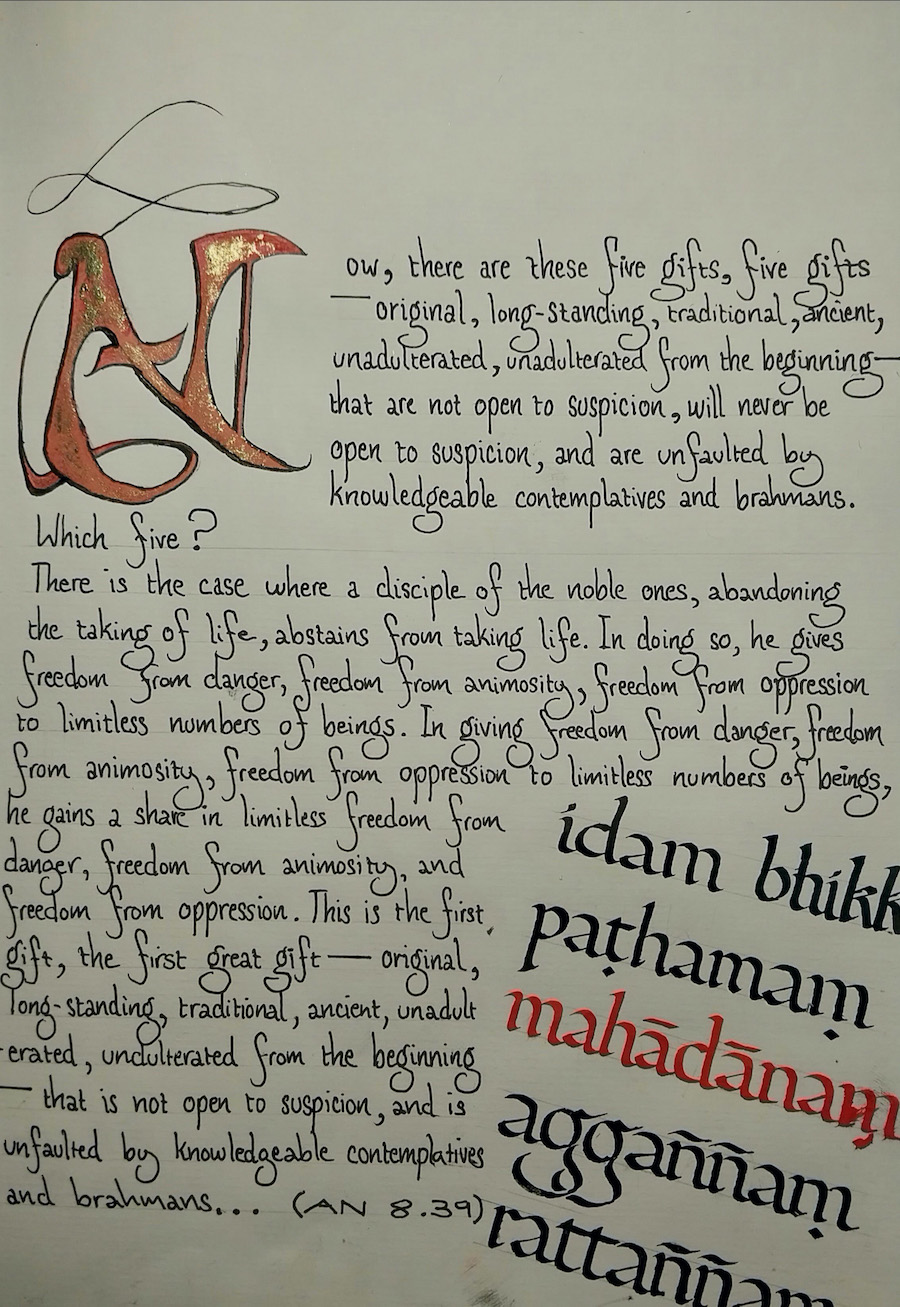 Now, there are these five gifts, five gifts
— original, long-standing, traditional, ancient,
unadulterated, unadulterated from the beginning—
that are not open to suspicion, will never be
open to suspicion, and are unfaulted by
knowledgeable contemplatives and brahmans.
Which five?
There is the case where a disciple of the noble ones, abandoning
the taking of life, abstains from taking life. In doing so, he gives
freedom from danger, freedom from animosity, freedom from oppression
to limitless numbers of beings. In giving freedom from danger, freedom
from animosity, freedom from oppression to limitless numbers of beings,
he gains a share in limitless freedom from
danger, freedom from animosity, and
freedom from oppression. This is the first
gift, the first great gift — original,
long-standing, traditional, ancient, unadult
-erated, undulterated from the beginning
— that is not open to suspicion, and is
unfaulted by knowledgeable contemplatives
and brahmans... (AN 8.39)
idam bhikk
paṭhamaṃ
mahādānaṃ
aggaññaṃ
rattaññam